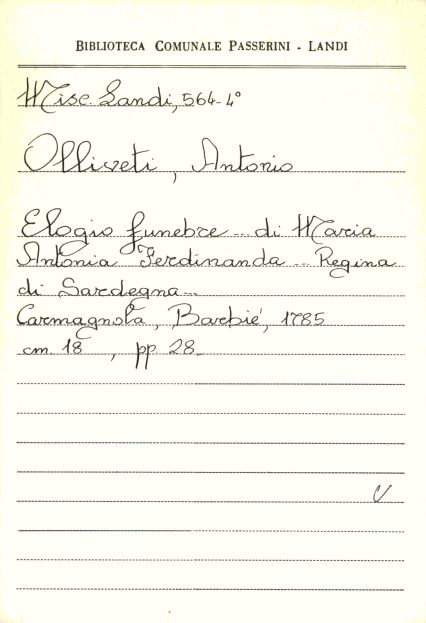 BIBLIOTECA COMUNALE PASSERINI - LANDI
Misc. Landi, 564-4°
Olliveti, Antonio
Elogio funebre ... di Maria
Antonia Ferdinanda ... Regina
di Sardegna ...
Carmagnola, Barbié, 1785
cm. 18 , pp 28